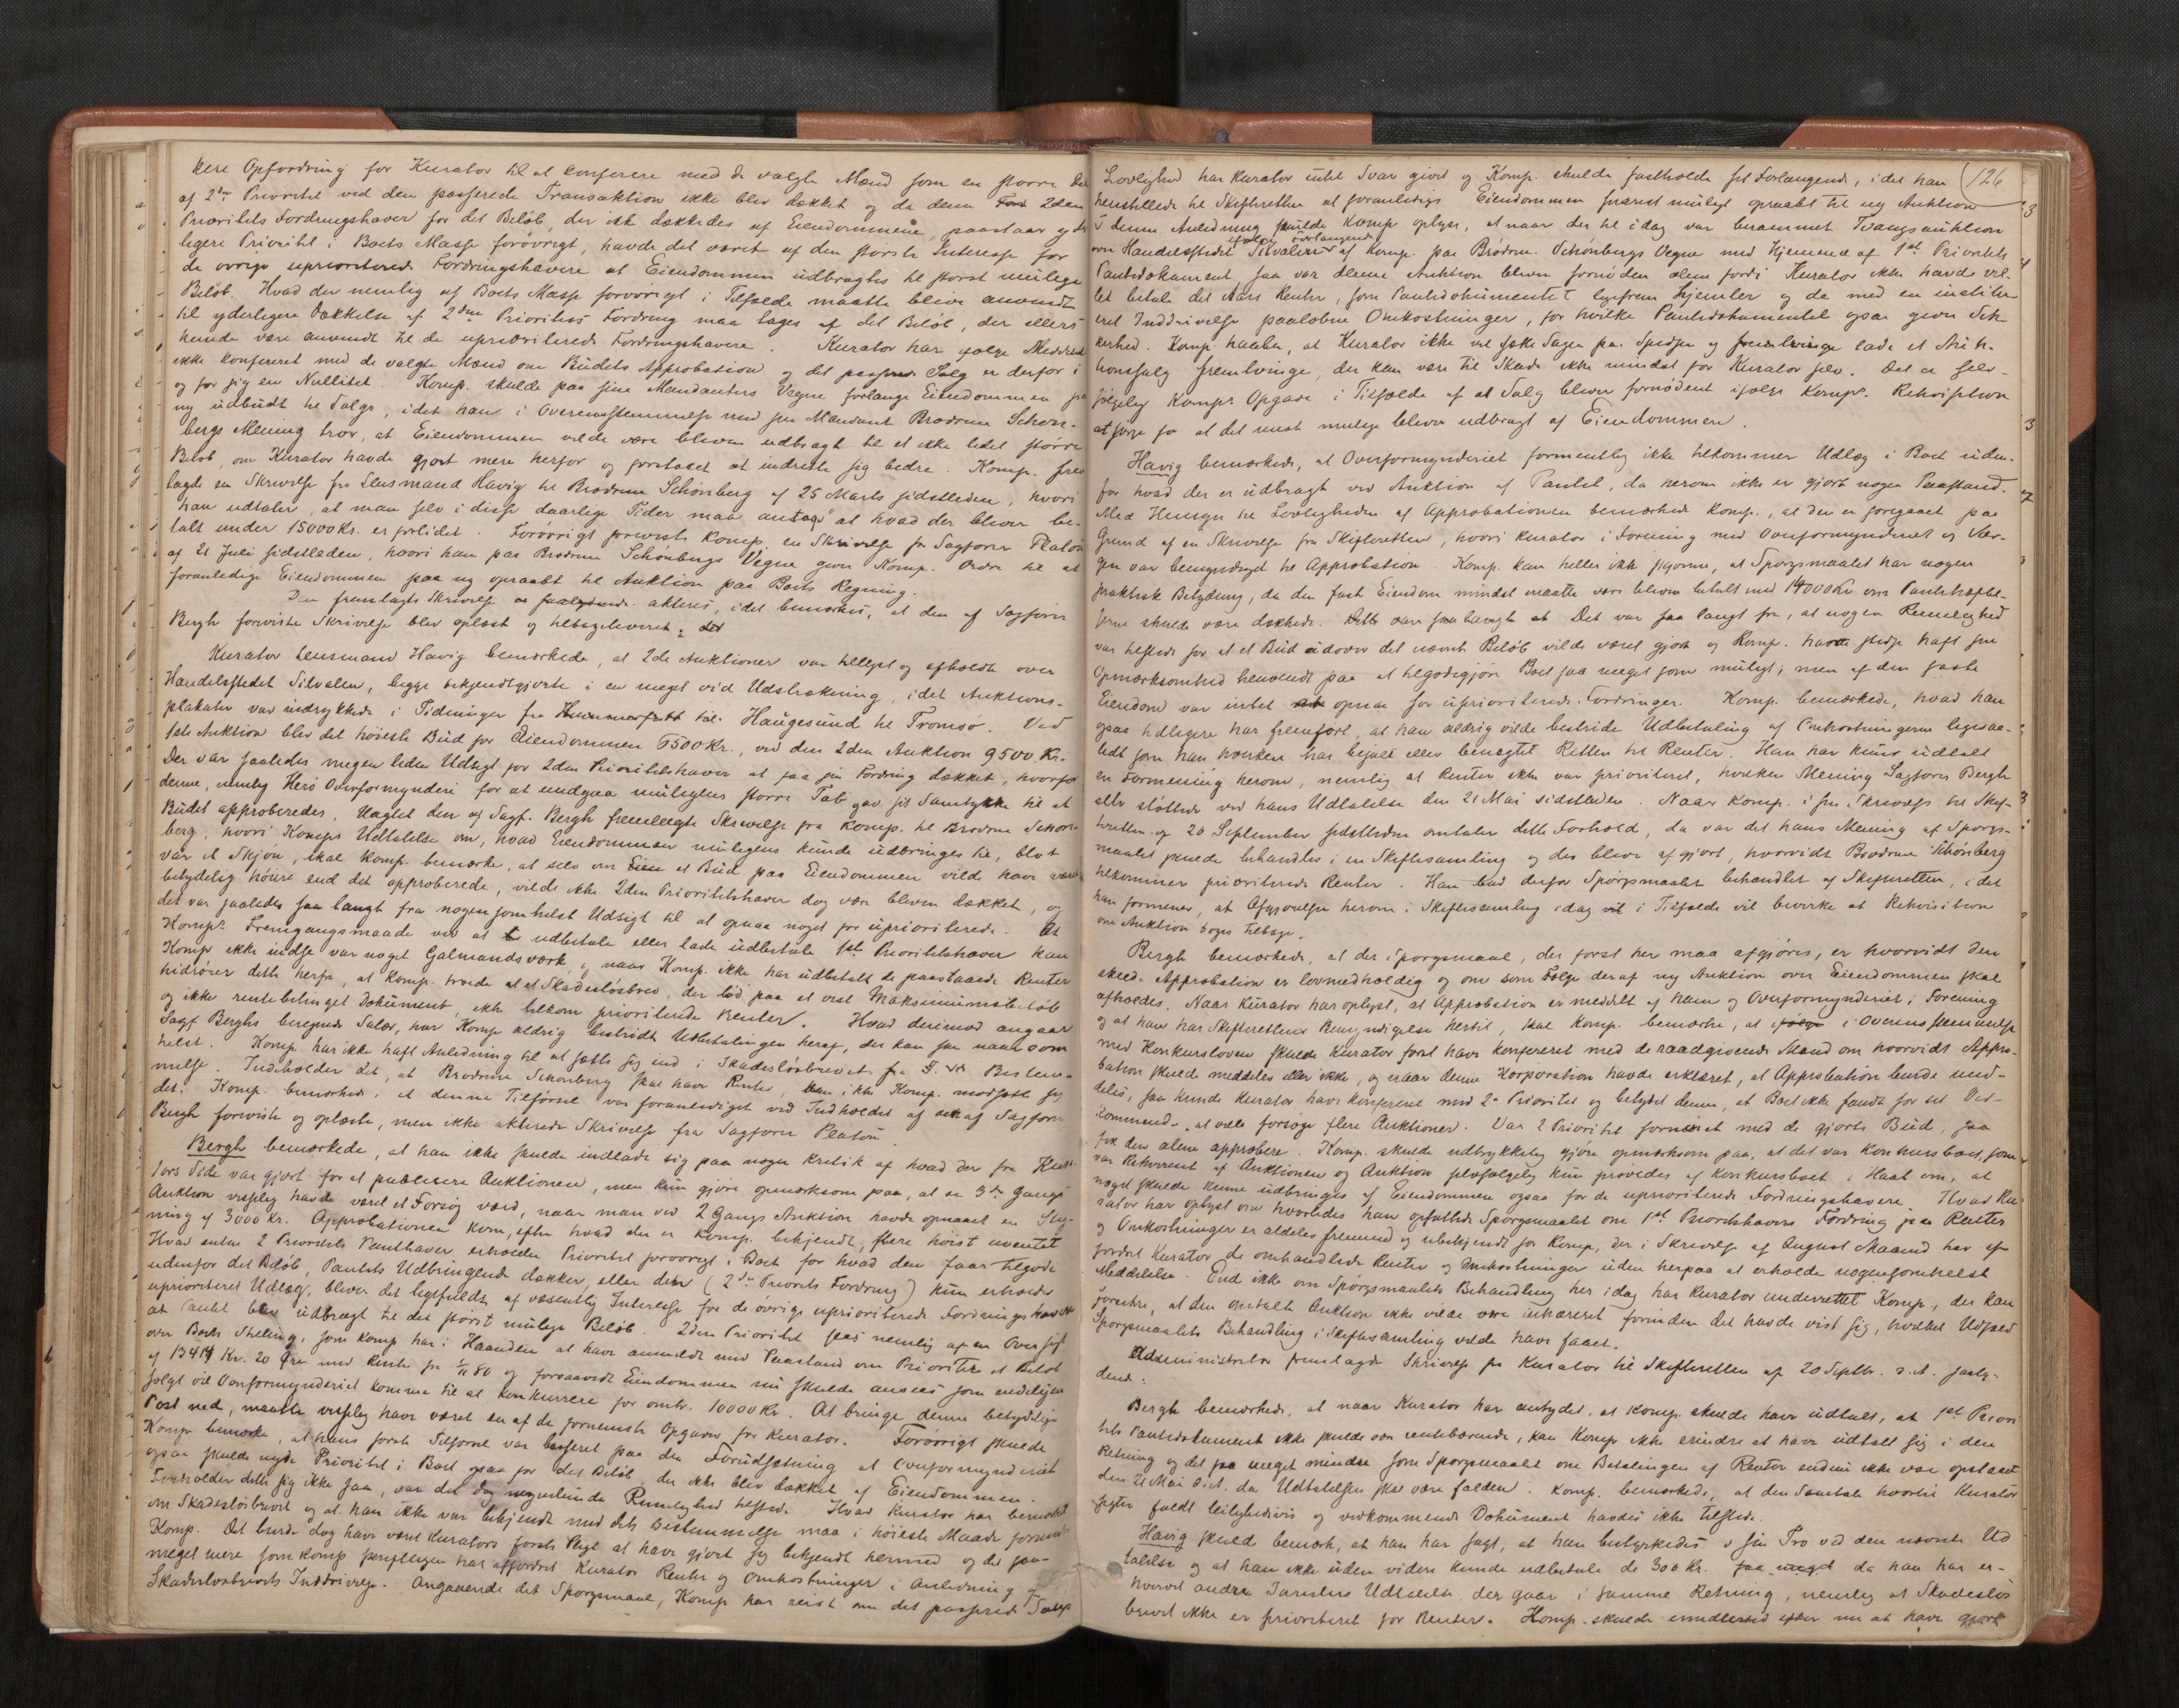 kere Opfordring for Kurator til at konferere med de valgte Mænd som en større Del
af 2den Prioritet ved den passerede Transaktion ikke blev dækket og da denne 2den
Prioritets Fordringshaver for det Beløb, der ikke dækkedes af Eiendommene, paastaar yder-
ligere Prioritet i Boets Masse forøvrigt, havde det været af den største Interesse for
de øvrige uprioriterede Fordringshavere at Eiendommen udbragtes til størst mulige
Beløb. Hvad der nemlig af Boets Masse forøvrigt i Tilfælde maatte blive anvendt
til yderligere Dækkelse af 2den Prioritets Fordring maa tages af det Beløb, der ellers
kunde være anvendt til de uprioriterede Fordringshavere. Kurator har ifølge Meddelelse
ikke konfereret med de valgte Mænd om Budets Approbation og det passerede Salg er derfor i
og for sig en Nullitet. Komp. skulde paa sine Mandanters Vegne forlange Eiendommen paa
ny udbudt til Salgs, idet han i Overensstemmelse med sin Mandant Brødrene Schøn-
bergs Mening tror, at Eiendommen vilde være bleven udbragt til et ikke lidet større
Beløb, om Kurator havde gjort mere herfor og forstaaet at indrette sig bedre. Komp. frem-
lagde en Skrivelse fra Lensmand Havig til Brødrene Schønberg af 25 Marts sidstleden, hvori
han udtaler, at man selv i disse daarlige Tider maa antage at hvad der bliver be-
talt under 15000 Kr. er forlidet. Forøvrigt foreviste Komp. en Skrivelse fra Sagfører Platou
af 21 Juli sidstleden, hvori han paa Brødrene Schønbergs Vegne giver Komp. Ordre til at
foranledige Eiendommen paa ny opraabt til Auktion paa Boets Regning.
Den fremlagte Skrivelse akteres, idet bemærkes, at den af Sagfører
Bergh foreviste Skrivelse blev oplæst og tilbageleveret.
Kurator Lensmand Havig bemærkede, at 2de Auktioner var tillyst og afholdt over
Handelsstedet Silvalen, begge bekjendtgjorte i en meget vid Udstrækning, idet Auktions-
plakater var indrykkede i Tidninger fra Haugesund til Tromsø. Ved
1ste Auktion blev det høieste Bud for Eiendommen 6500 Kr., ved den 2den Auktion 9500 Kr.
Der var saaledes megen liden Udsigt for 2den Prioritetshaver at faa sin Fordring dækket, hvorfor
denne, nemlig Herø Overformynderi for at undgaa muligens større Tab gav sit Samtykke til at
Budet approberedes. Uagtet den af Sagf. Bergh fremlagte Skrivelse fra Komp. til Brødrene Schøn-
berg, hvori Komps Udtalelse om, hvad Eiendommen muligens kunde udbringes til, blot
var et Skjøn, skal Komp. bemærke, at selv om et Bud paa Eiendommen vilde have været
betydelig høiere end det approberede, vilde ikke 2den Prioritetshaver dog være bleven dækket, og
det var saaledes saa langt fra nogensomhelst Udsigt til at opnaa noget for uprioriterede. At
Komps Fremgangsmaade ved at udbetale eller lade udbetale 1ste Prioritetshaver kan
Komp ikke indse var noget Galmandsværk, naar Komp. ikke har udbetalt de paastaaede Renter
hidrører dette herfra, at Komp. troede at et Skadesløsbrev, der lød paa et vist Maksimumsbeløb
og ikke rentebetinget Dokument, ikke tilkom prioriterede Renter. Hvad derimod angaar
Sagf. Berghs beregnede Salær, har Komp aldrig bestridt Udbetalingen heraf, der kan ske naarsom
helst. Komp har ikke haft Anledning til at sætte sig ind i Skadesløsbrevets Bestem-
melse. Indeholder det, at Brødrene Schønberg skal have Renter, kan ikke Komp. modsætte sig
det. Komp. bemærkede, at denne Tilførsel var foranlediget ved Indholdet af en af Sagfører
Bergh foreviste og oplæste, men ikke akterede Skrivelse fra Sagfører Platou
Bergh bemærkede, at han ikke skulde indlade sig paa nogen Kritik af hvad der fra Kura-
tors Side var gjort for at publisere Auktionen, men kun gjøre opmærksom paa, at en 3die Gangs
Auktion visselig havde været et Forsøg værd, naar man ved 2 Gangs Auktion havde opnaaet en Stig-
ning af 3000 Kr. Approbationen kom, efter hvad der er Komp. bekjendt, flere høist uventet
Hvad enten 2 Prioritets Panthaver erholder Prioritet forøvrigt i Boet for hvad den faar tilgode
udenfor det Beløb, Pantets Udbringende dækker, eller den (2den Priorits Fordring) kun erholder
uprioriteret Udlæg, bliver det ligefuldt af væsentlig Interesse for de øvrige uprioriterede Fordringshavere
at Pantet blev udbragt til det størst mulige Beløb. 2den Prioritet sees nemlig af en Oversigt
over Boets Stilling, som Komp har i Hænden at have anmeldt med Paastand om Prioritet et Beløb
af 13414 Kr. 20 Øre med Rente fra 80 og forsaavidt Eiendommen nu skulde ansees som endeligen
solgt vil Overformynderiet komme til at konkurrere for omtr. 10000 Kr. At bringe denne betydelige
Post ned, maatte visselig have været en af de fornemste Opgaver for Kurator. Forøvrigt skulde
Komp bemærke, at hans første Tilførsel var basseret paa den Forudsætning at Overformynderiet
ogsaa skulde nyde Prioritet i Boet ogsaa for det Beløb, der ikke blev dækket af Eiendommen.
Forholder dette sig ikke saa, var det dog Rimelighed tilstede. Hvad Kurator har bemærket
om Skadesløsbrevet og at han ikke var bekjendt med dets Bestemmelse maa i høieste Maade forundre
Komp. Det burde dog have været Kurators første Pligt at have gjort sig bekjendt hermed og det saa-
meget mere som Komp skriftligen har affordret Kurator Renter og Omkostninger i Anledning af
Skadesløsbrevets Inddrivelse. Angaaende det Spørgsmaal, Komp har reist om det passerede Salgs
Lovlighed har Kurator intet Svar givet og Komp. skulde fastholde sit Forlangende, idet han (126
henstillede til Skifteretten at foranledige Eiendommen snarest muligt opraabt til ny Auktion
I denne Anledning skulde Komp oplyse, at naar der til idag var berammet Tvangsauktion
ifølge Forlangende
over Handelsstedet Silvalen af Komp. paa Brødrene Schønbergs Vegne med Hjemmel af 1ste Prioritets
Pantedokument, saa var denne Auktion bleven fornøden alene fordi Kurator ikke havde vil-
let betale det Aars Renter, som Pantedokumentet ligefrem hjemler og de med en institue-
ret Inddrivelse paaløbne Omkostninger, for hvilke Pantedokumentet ogsaa giver Sik-
kerhed. Komp. haaber, at Kurator ikke vil sætte Sagen paa Spidsen og lade et Auk-
tionssalg fremtvinge, der kan være til Skade ikke mindst for Kurator selv. Det er selv-
følgelig Komps Opgave i Tilfælde af at Salg bliver fornødent ifølge Komps. Rekvisition
at sørge for at det mest mulige bliver udbragt af Eiendommen.
Havig bemærkede, at Overformynderiet formentlig ikke tilkommer Udlæg i Boet uden-
for hvad der er udbragt ved Auktion af Pantet, da herom ikke er gjort nogen Paastand.
Med Hensyn til Lovligheden af Approbationen bemærkede Komp., at den er foregaaet paa
Grund af en Skrivelse fra Skifteretten, hvori Kurator i Forening med Overformynderiet og Vær-
gen var bemyndiget til Approbation. Komp. kan heller ikke skjønne, at Spørgsmaalet har nogen
praktisk Betydning, da den faste Eiendom mindst maatte være bleven betalt med 14000 Kr om Pantehæftel-
serne skulde være dækkede. Det var saa langt fra, at nogen Rimelighed
var tilstede for at et Bud udover det nævnte Beløb vilde været gjort og Komp. havde stedse haft sin
Opmærksomhed henvendt paa at tilgodegjøre Boet saa meget som muligt; men af den faste
Eiendom var intet opnaa for uprioriterede Fordringer. Komp. bemærkede, hvad han
ogsaa tidligere har fremført, at han aldrig vilde bestride Udbetaling af Omkostningerne ligesaa-
lidt som han hverken har bejaet eller benægtet Retten til Renter. Han har kuns udtalt
en Formening herom, nemlig at Renter ikke var prioriteret, hvilken Mening Sagfører Bergh
selv støttede ved hans Udtalelse den 21 Mai sidstleden. Naar Komp. i sin Skrivelse til Skif-
teretten af 20 September sidstleden omtaler dette Forhold, da var det hans Mening at Spørgs-
maalet skulde behandles i en Skiftesamling og der blive afgjort, hvorvidt Brødrene Schønberg
tilkommer prioriterede Renter. Han bad derfor Spørgsmaalet behandlet af Skifteretten, idet
han formener, at Afgjørelsen herom i Skiftesamling idag i Tilfælde vil bevirke at Rekvisition
om Auktion tages tilbage.
Bergh bemærkede, at det Spørgsmaal, der først her maa afgjøres, er hvorvidt den
skeede Approbation er lovmedholdig og om som Følge deraf ny Auktion over Eiendommen skal
afholdes. Naar Kurator har oplyst, at Approbation er meddelt af ham og Overformynderiet i Forening
og at han har Skifterettens Bemyndigelse hertil, skal Komp. bemærke, at i Overensstemmelse
med Konkursloven skulde Kurator først have konfereret med de raadgivende Mænd om hvorvidt Appro-
bation skulde meddeles eller ikke, og naar denne Korporation havde erklæret, at Approbation burde med-
deles, saa kunde Kurator have konfereret med 2den Prioritet og betydet denne, at Boet ikke fandt for sit Ved-
kommende at ville forsøge flere Auktioner. Var 2 Prioritet fornøiet med de gjorte Bud, saa
fik den alene approbere. Komp. skulde udtrykkelig gjøre opmærksom paa, at det var Konkursboet, som
var Rekvirent af Auktionen og Auktion selvfølgelig kun prøvedes af Konkursboet i Haab om, at
noget skulde kunne udbringes af Eiendommen ogsaa for de uprioriterede Fordringshavere. Hvad Ku-
rator har oplyst om hvorledes han opfattede Spørgsmaalet om 1ste Prioritshavers Fordring paa Renter
og Omkostninger er aldeles fremmed og ubekjendt for Komp, der i Skrivelse af August Maaned har af-
fordret Kurator de omhandlede Renter og Omkostninger uden herpaa at erholde nogensomhelst
Meddelelse. End ikke om Spørgsmaalets Behandling her idag har Kurator underrettet Komp., der kan
forsikre, at den omtalte Auktion ikke vilde være inkaareret forinden det havde vist sig, hvilket Udfald
Spørgsmaalets Behandling i Skiftesamling vilde have faaet.
Administrator fremlagde Skrivelse fra Kurator til Skifteretten af 20 Septbr. d.A. saaly-
dende:
Bergh bemærkede, at naar Kurator har antydet, at Komp. skulde have udtalt, at 1ste Priori
tets Pantedokument ikke skulde være rentebærende, kan Komp ikke erindre at have udtalt sig i den
Retning og det saa meget mindre som Spørgsmaalet om Betalingen af Renter endnu ikke var opstaaet
den 21 Mai d.A. da Udtalelsen skal være falden. Komp. bemærkede, at den Samtale hvortil Kurator
sigter faldt leilighedsvis og vedkommende Dokument havdes ikke tilstede.
Havig skuld bemærk, at han har sagt, at han bestyrkedes i sin Tro ved den nævnte Ud
talelse og at han ikke uden videre kunde udbetale de 300 Kr. da han har er-
hvervet andre Juristers Udtalelse der gaar i samme Retning, nemlig at Skadesløs
brevet ikke er prioriteret for Renter. Komp. skulde imidlertid efter nu at have gjort